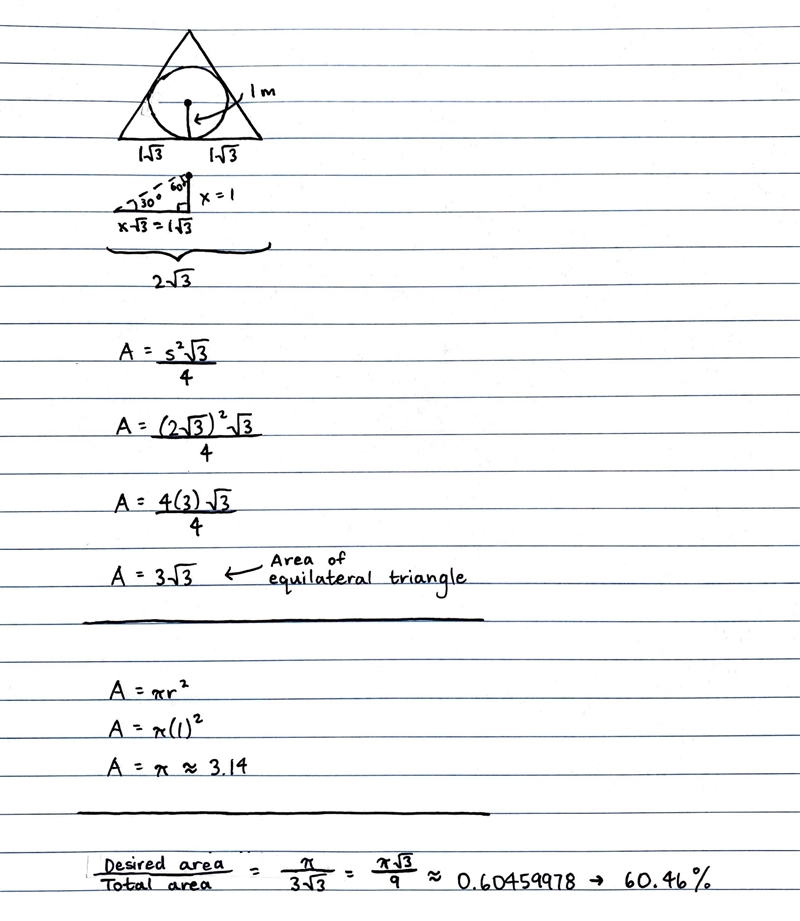 1m
1√3 1√3
60°
30° x = 1
x√3 = 1√3
2√3
A = s²√3/4
A = (2√3)²√3/4
A = 4(3)√3/4
A = 3√3 ← Area of equilateral triangle
A = πr²
A = π(1)²
A = π ≈ 3.14
Desired area/Total area = π/3√3 = π√3/9 ≈ 0.60459978 → 60.46%